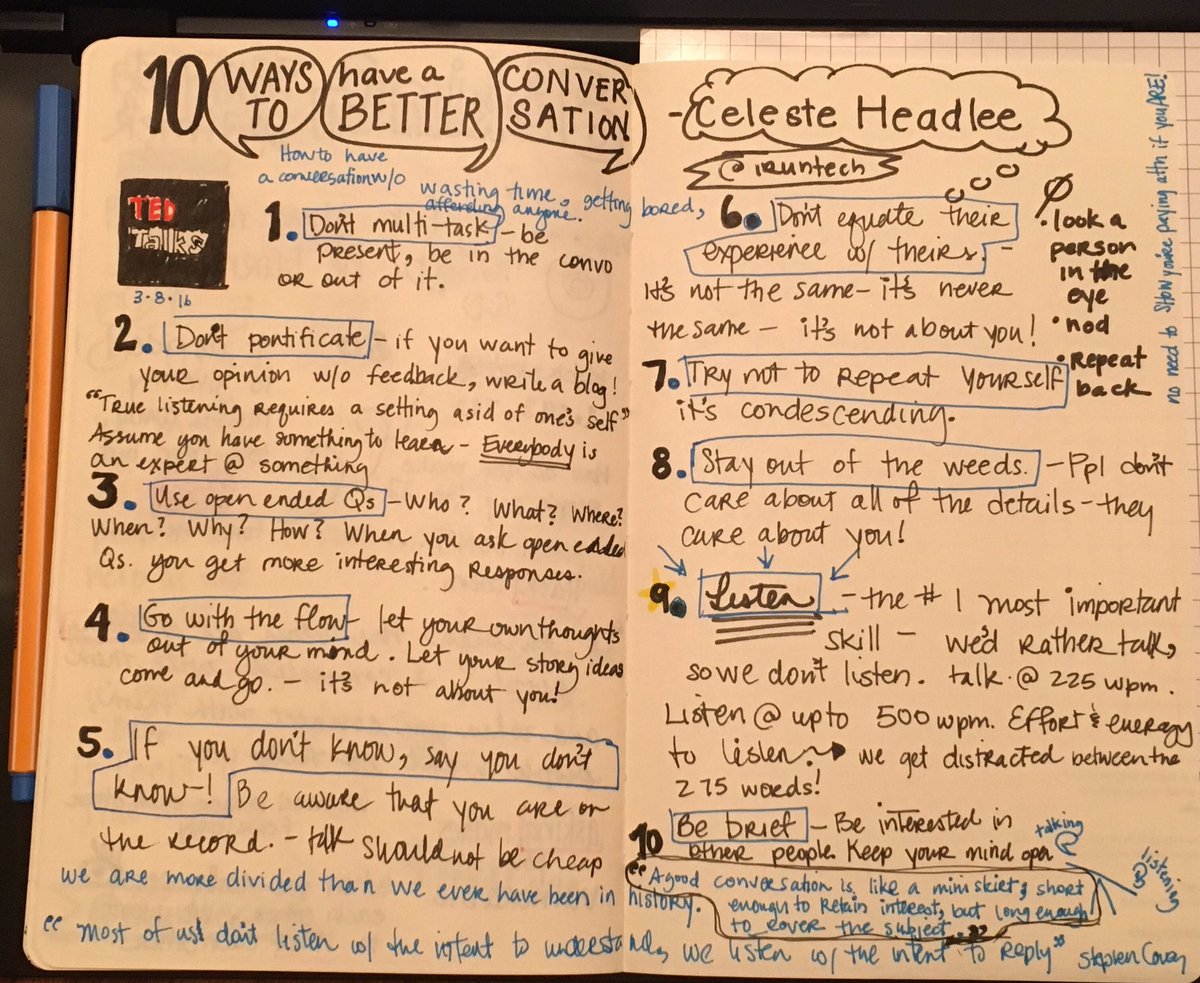 10 WAYS TO have a BETTER CONVERSATION
- Celeste Headlee
@iRuntech
How to have
a conversation w/o wasting time, getting bored,
affending anyone.
TED
Talks
3-8-16
1. Don't multi-task - be
present, be in the convo
or out of it.
2. Don't pontificate - if you want to give
your opinion w/o feedback, write a blog!
"True listening requires a setting asid of one's self"
Assume you have something to learn - Everybody is
an expert @ something
3. Use open ended Qs - Who? What? Where?
When? Why? How? When you ask open ended
Qs. you get more interesting responses.
4. Go with the flow - let your own thoughts
out of your mind. Let your story ideas
come and go. - it's not about you!
5. If you don't know, say you don't
know-! Be aware that you are on
the record. - talk should not be cheap
we are more divided than we ever have been in history.
"most of us don't listen w/ the intent to understand, we listen w/ the intent to reply" Stephen Covey
6. Don't equate their
experience w/ theirs. -
it's not the same - it's never
the same - it's not about you!
• look a
person
in the
eye
• nod
• Repeat
back
no need to show you're paying attn if you ARE!
7. Try not to repeat yourself
it's condescending.
8. Stay out of the weeds. - Ppl don't
care about all of the details - they
care about you!
9. Listen - the # 1 most important
skill - we'd rather talk,
so we don't listen. talk @ 225 wpm.
Listen @ up to 500 wpm. Effort & energy
to listen. we get distracted between the
275 words!
10 Be brief - Be interested in
other people. Keep your mind open
talking
listening
"A good conversation is like a miniskirt; short
enough to retain interest, but long enough
to cover the subject."